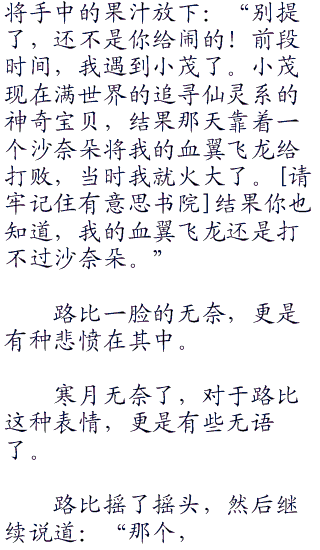 将手中的果汁放下：“别提
了，还不是你给闹的！前段
时间，我遇到小茂了。小茂
现在满世界的追寻仙灵系的
神奇宝贝，结果那天靠着一
个沙奈朵将我的血翼飞龙给
打败，当时我就火大了。[请
牢记住有意思书院]结果你也
知道，我的血翼飞龙还是打
不过沙奈朵。”
路比一脸的无奈，更是
有种悲愤在其中。
寒月无奈了，对于路比
这种表情，更是有些无语
了。
路比摇了摇头，然后继
续说道：“那个，